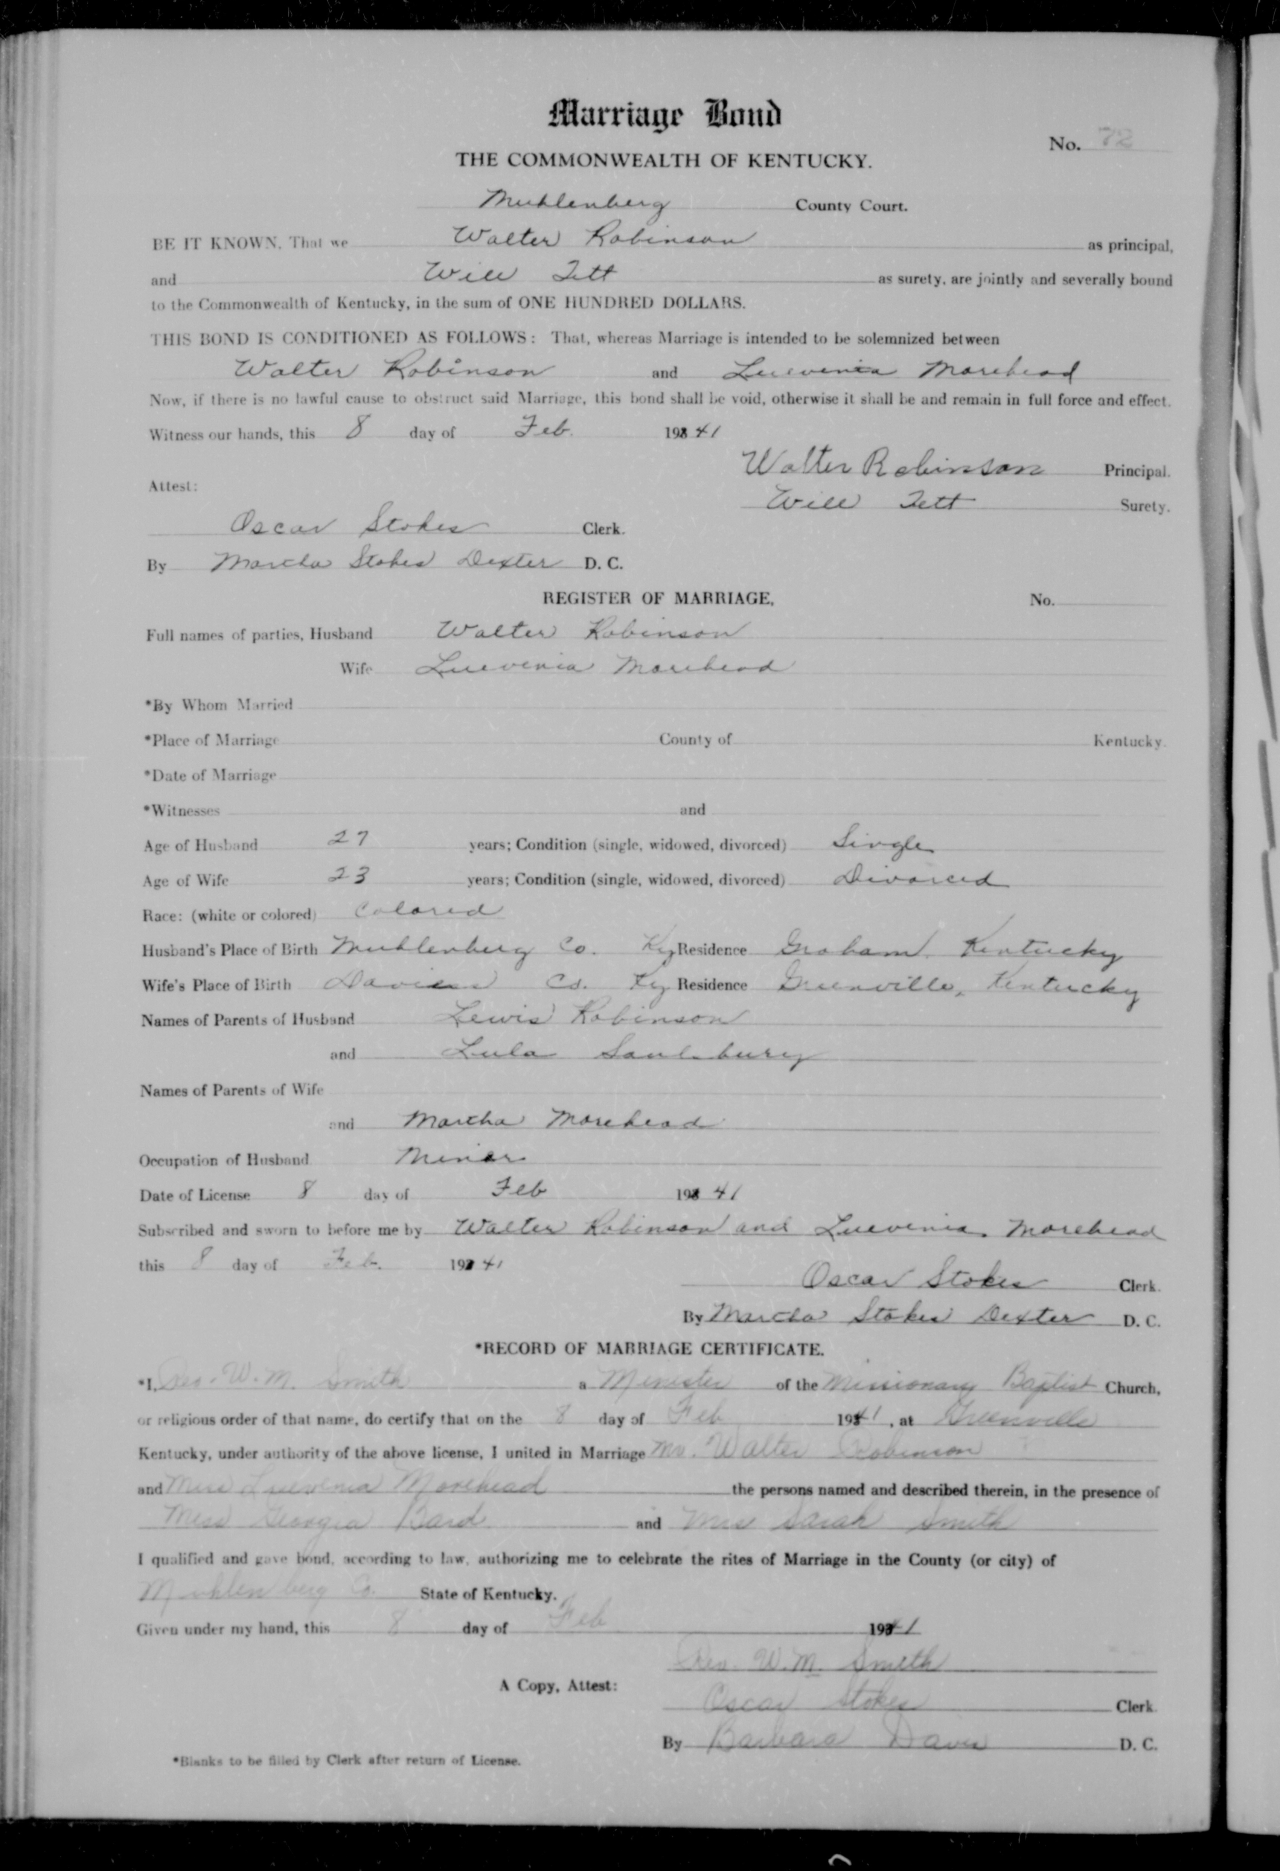 Marriage Bond
No. 72
THE COMMONWEALTH OF KENTUCKY.
Muhlenberg County Court.
BE IT KNOWN, That we Walter Robinson as principal,
and Will Tett as surety, are jointly and severally bound
to the Commonwealth of Kentucky, in the sum of ONE HUNDRED DOLLARS.
THIS BOND IS CONDITIONED AS FOLLOWS: That, whereas Marriage is intended to be solemnized between
Walter Robinson and Luevenia Morehead
Now, if there is no lawful cause to obstruct said Marriage, this bond shall be void, otherwise it shall be and remain in full force and effect.
Witness our hands, this 8 day of Feb. 1941
Walter Robinson Principal.
Attest:
Will Tett Surety.
Oscar Stokes Clerk.
By Martha Stokes Dexter D. C.
REGISTER OF MARRIAGE, No.
Full names of parties, Husband Walter Robinson
Wife Luevenia Morehead
*By Whom Married
*Place of Marriage County of Kentucky.
*Date of Marriage
*Witnesses and
Age of Husband 27 years; Condition (single, widowed, divorced) Single
Age of Wife 23 years; Condition (single, widowed, divorced) Divorced
Race: (white or colored) Colored
Husband's Place of Birth Muhlenberg Co. Ky Residence Graham, Kentucky
Wife's Place of Birth Daviess Co. Ky Residence Greenville, Kentucky
Names of Parents of Husband Lewis Robinson
and Lula Saulsbury
Names of Parents of Wife
and Martha Morehead
Occupation of Husband Miner
Date of License 8 day of Feb 1941
Subscribed and sworn to before me by Walter Robinson and Luevenia Morehead
this 8 day of Feb. 1941
Oscar Stokes Clerk.
By Martha Stokes Dexter D. C.
*RECORD OF MARRIAGE CERTIFICATE.
*I, Rev. W. M. Smith a Minister of the Missionary Baptist Church,
or religious order of that name, do certify that on the 8 day of Feb 1941, at Greenville
Kentucky, under authority of the above license, I united in Marriage Mr. Walter Robinson
and Miss Luevenia Morehead the persons named and described therein, in the presence of
Miss Georgia Bard and Mrs Sarah Smith
I qualified and gave bond, according to law, authorizing me to celebrate the rites of Marriage in the County (or city) of
Muhlenberg Co. State of Kentucky.
Given under my hand, this 8 day of Feb 1941
Rev. W. M. Smith
A Copy, Attest:
Oscar Stokes Clerk
By Barbara Davis D. C.
*Blanks to be filled by Clerk after return of License.